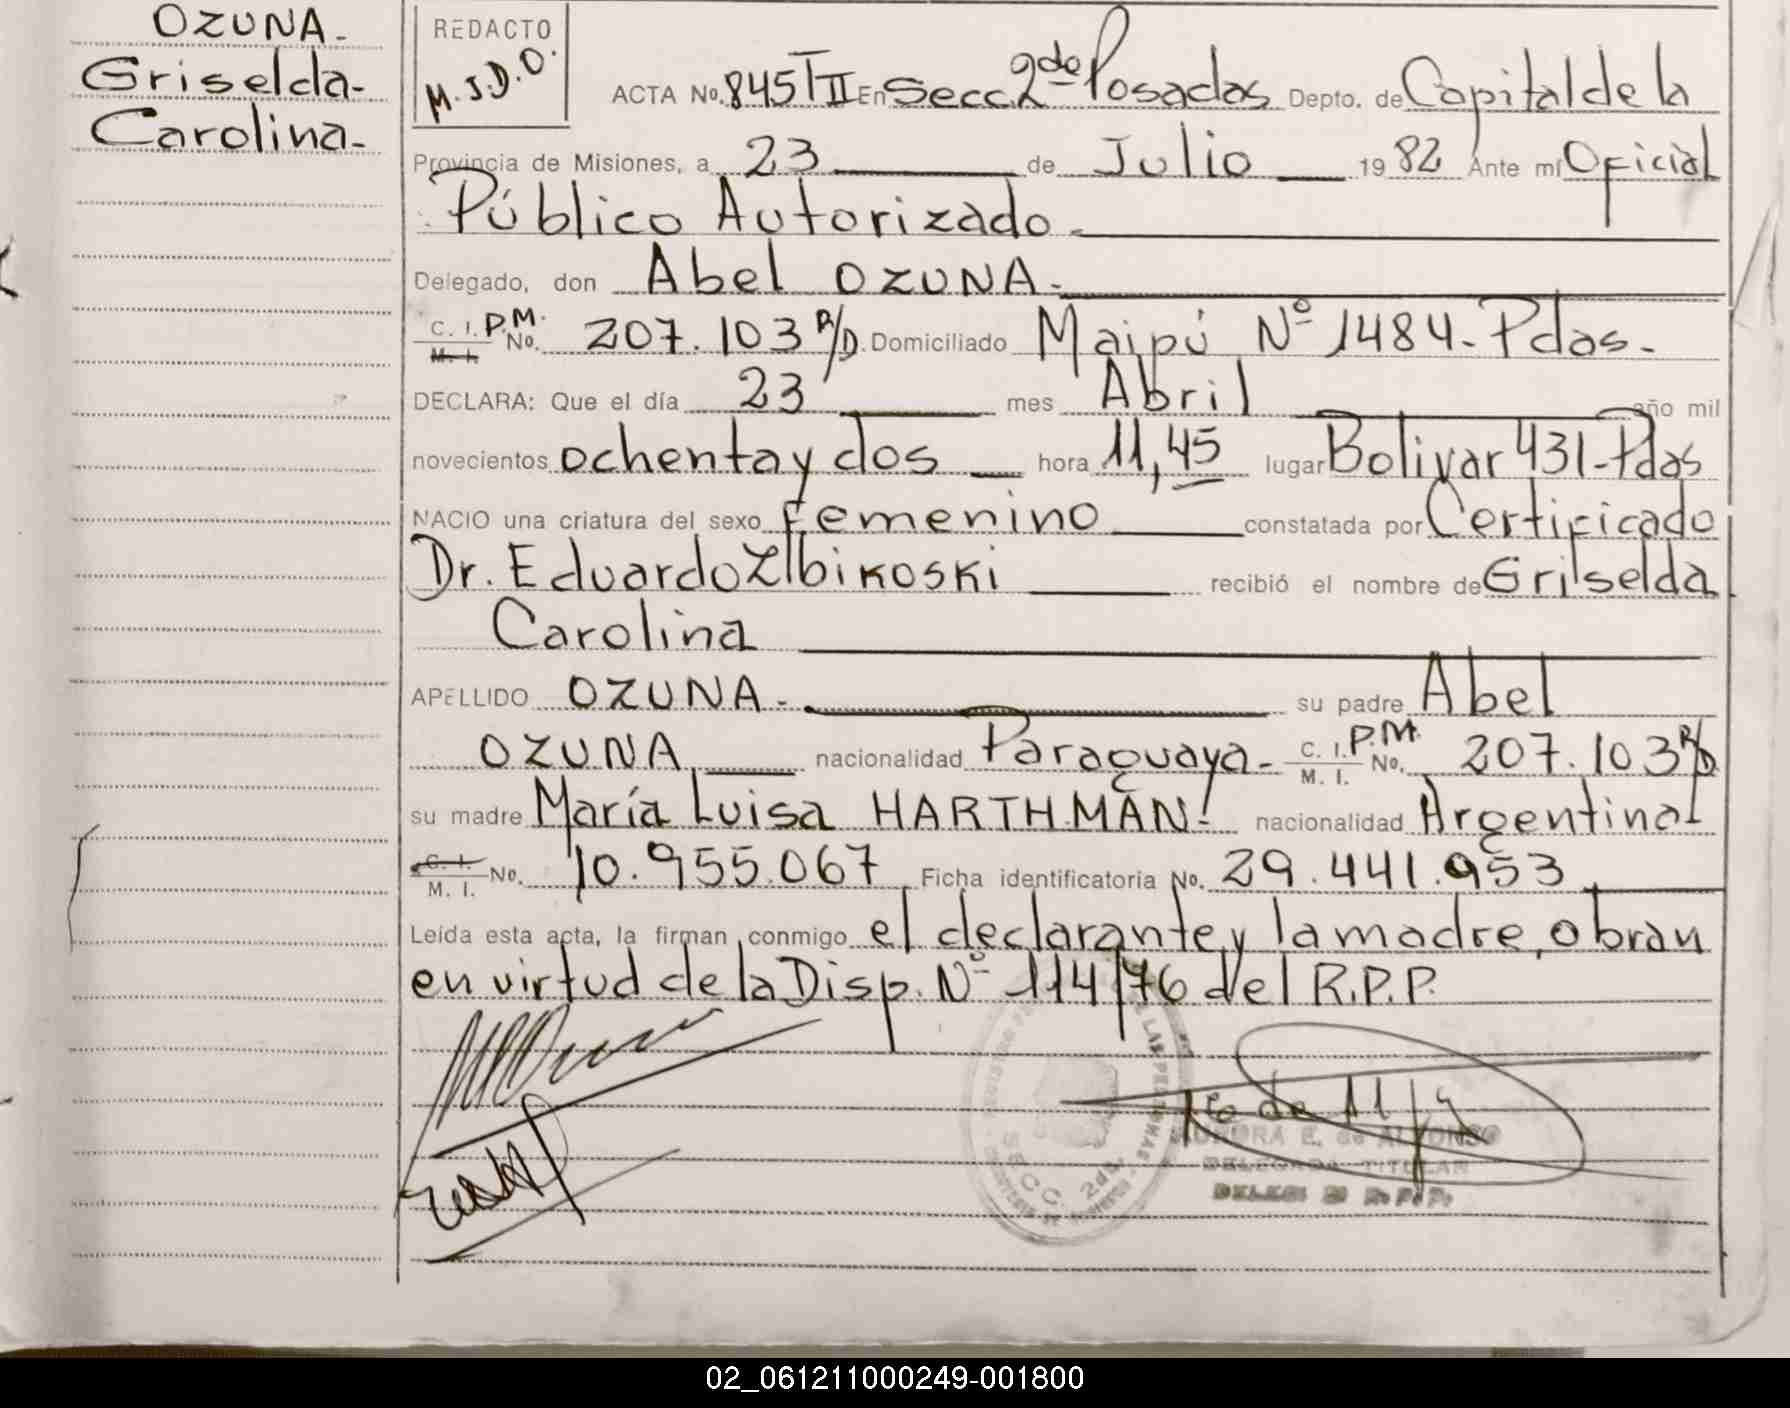 OZUNA-
Griselda-
Carolina-
REDACTO
M.J.D.O.
ACTA No. 845 TII En Secc. 2da Posadas Depto. de Capital de la
Provincia de Misiones, a 23 de Julio 1982 Ante mí Oficial
Público Autorizado-
Delegado, don Abel OZUNA-
C. I. P.M.
M. I. No. 207.103 R/D. Domiciliado Maipú Nº 1484-Pdas-
DECLARA: Que el día 23 mes Abril año mil
novecientos ochenta y dos hora 11,45 lugar Bolivar 431-Pdas
NACIO una criatura del sexo femenino constatada por Certificado
Dr. Eduardo Zlbikoski recibió el nombre de Griselda
Carolina
APELLIDO OZUNA- su padre Abel
OZUNA nacionalidad Paraguaya- C. I. P.M.
M. I. No. 207.103 R/D
su madre María Luisa HARTHMAN- nacionalidad Argentina-
C. I.
M. I. No. 10.955.067 Ficha identificatoria No. 29.441.953
Leída esta acta, la firman conmigo el declarante y la madre, obran
en virtud de la Disp. Nº 114/76 del R.P.P.
DE LAS PERSONAS
SECC. 2da.
AURORA E. de ALFONSO
DELEGADA TITULAR
R.P.P.
02_061211000249-001800